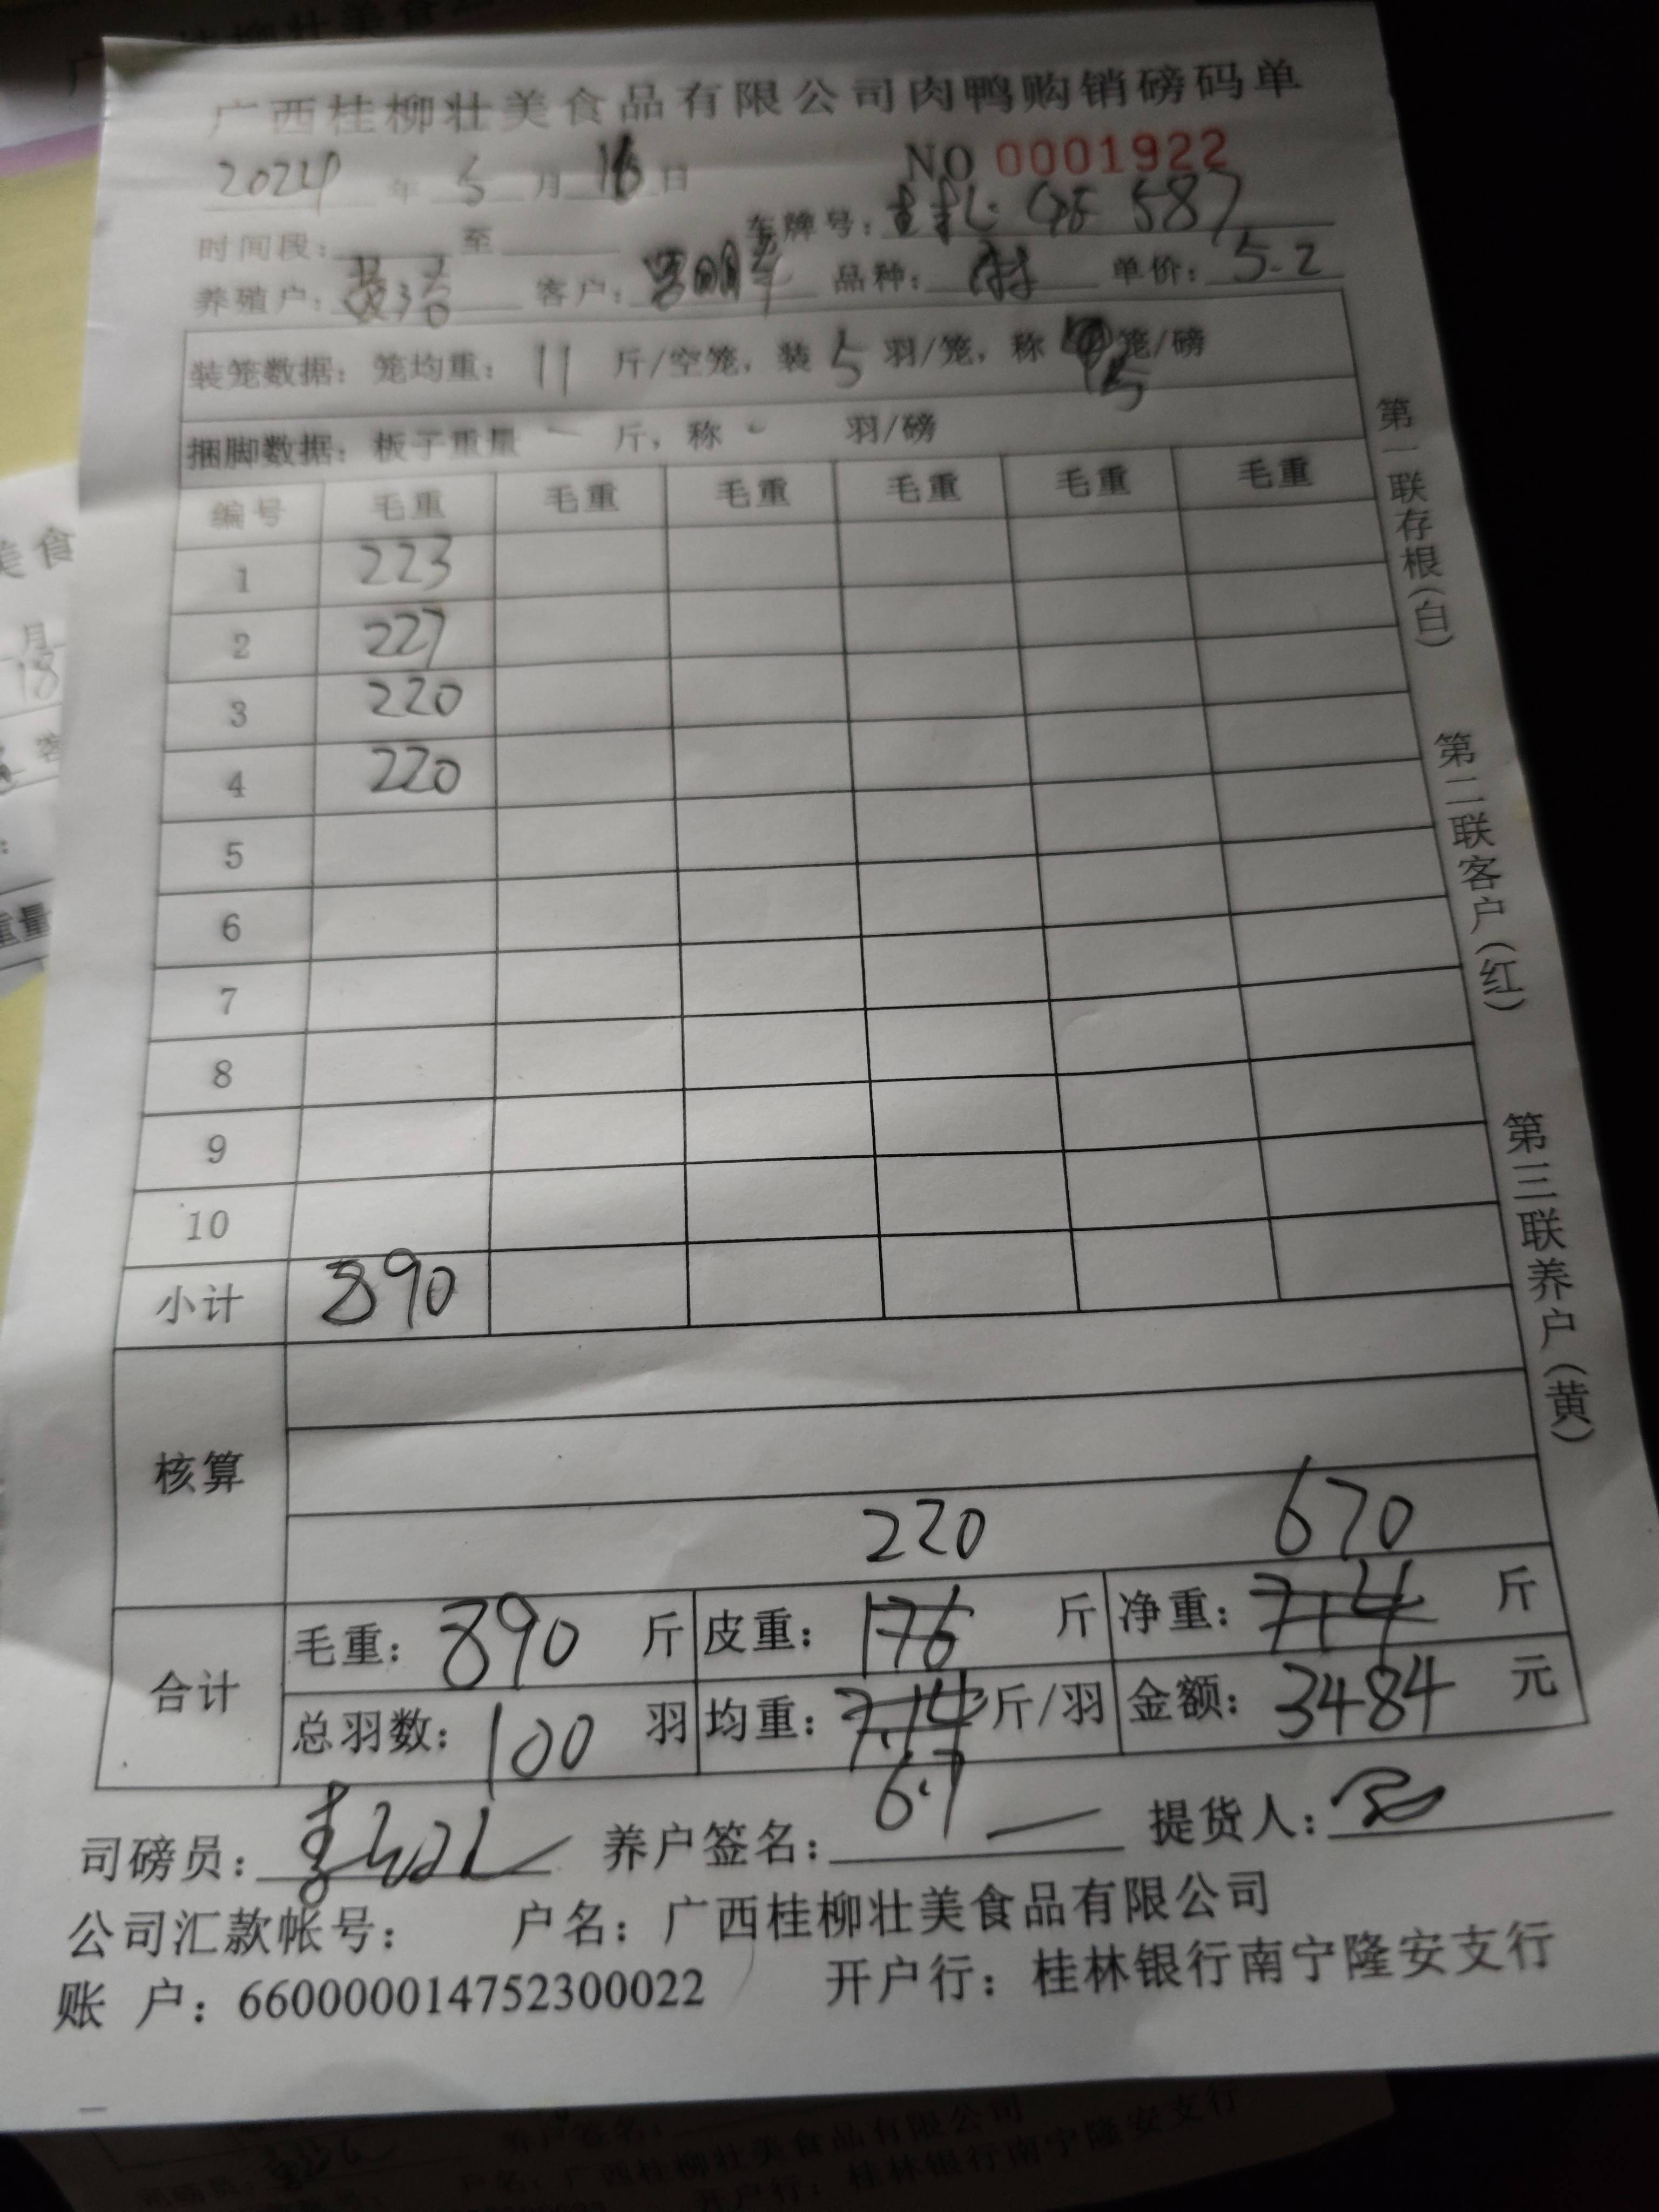 广西桂柳壮美食品有限公司肉鸭购销磅码单
2024 年 5 月 16 日 NO 0001922
时间段: 至 车牌号: 587
养殖户: 客户: 品种: 单价: 5.2
装笼数据: 笼均重: 11 斤/空笼, 装 5 羽/笼, 称 5 笼/磅
捆脚数据: 板子重量 一 斤, 称 - 羽/磅
编号 毛重 毛重 毛重 毛重 毛重 毛重
1 223
2 227
3 220
4 220
5
6
7
8
9
10
小计 890
核算
220 670
合计 毛重: 890 斤 皮重: 176 斤 净重: 714 斤
总羽数: 100 羽 均重: 7.14 斤/羽 金额: 3484 元
6.7
司磅员: 养户签名: 提货人:
公司汇款帐号: 户名: 广西桂柳壮美食品有限公司
账 户: 660000014752300022 开户行: 桂林银行南宁隆安支行
第一联存根(白)
第二联客户(红)
第三联养户(黄)